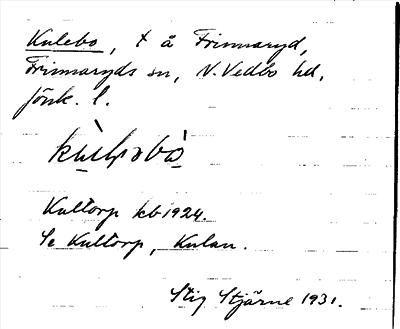 Kulebo, t å Frinnaryd,
Frinnaryds sn, N. Vedbo hd,
Jönk. l.
Kultorp kb 1924.
Se Kultorp, Kulan.
Stig Stjärne 1931.